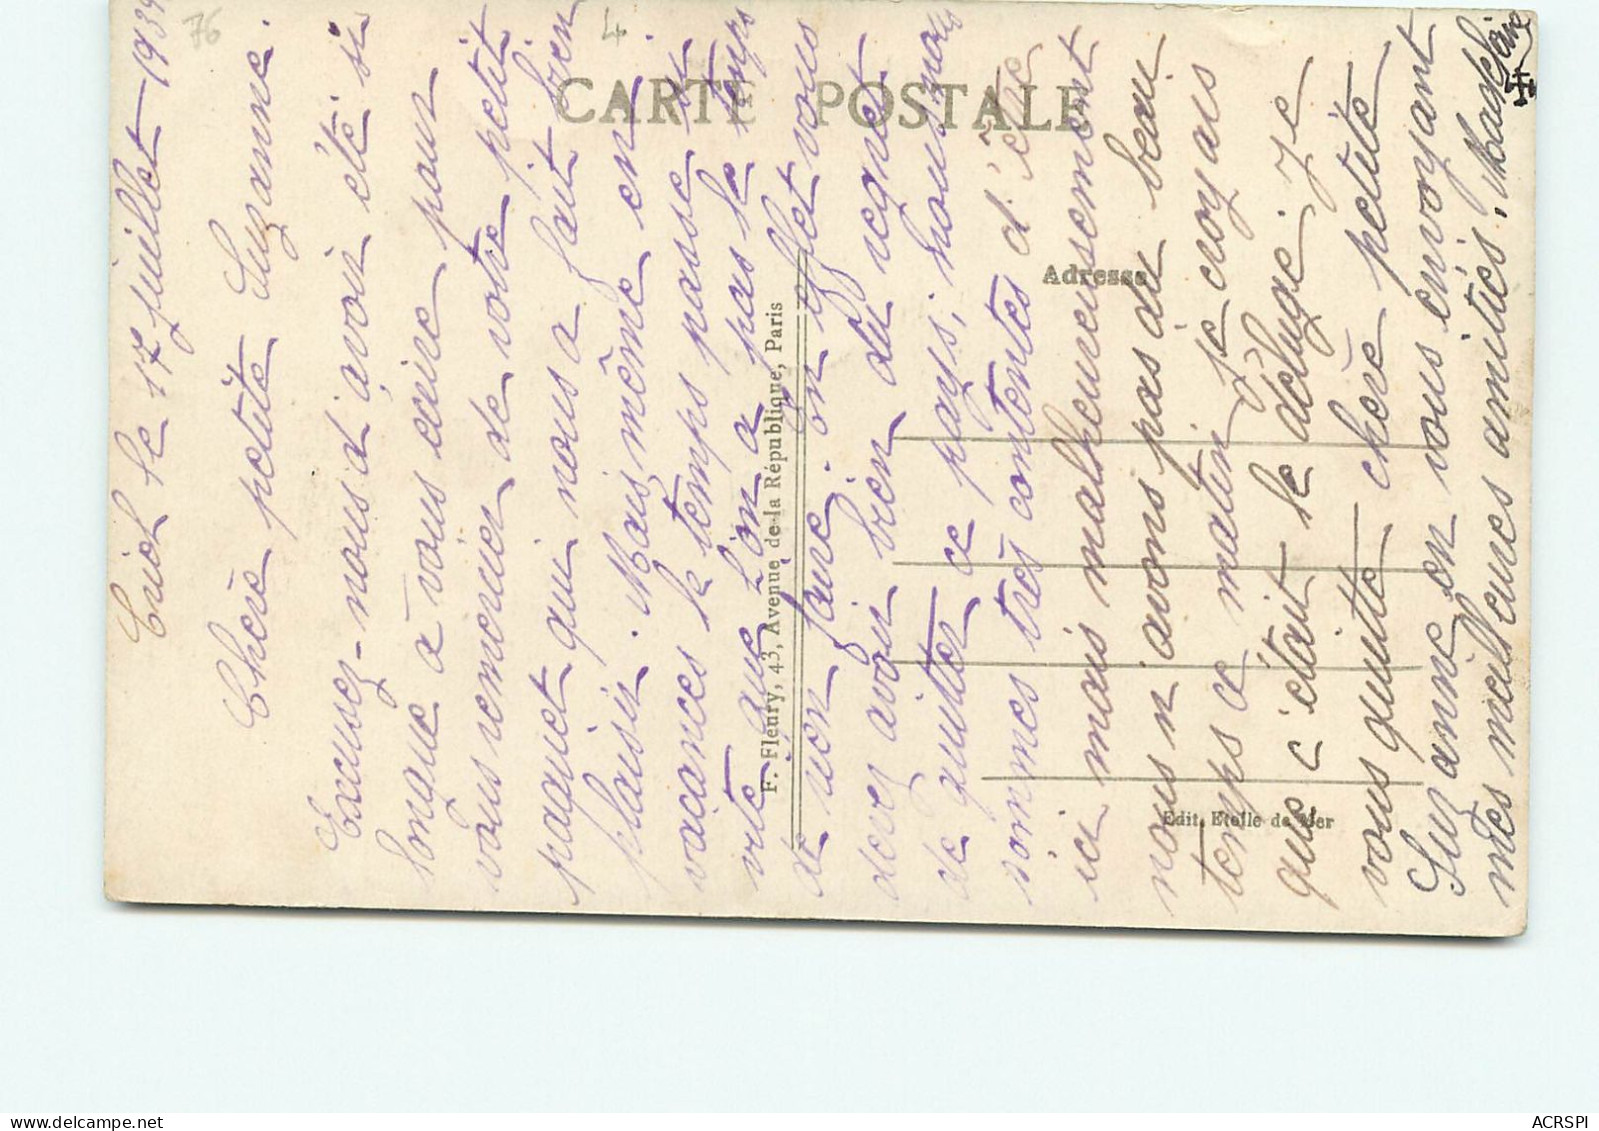 Criel le 17 juillet 1939
Chère petite Suzanne.
Excusez-nous d'avoir été si
longue à vous écrire pour
vous remercier de votre petit
paquet qui nous a fait bien
plaisir. Mais même en
vacances le temps passe si
vite que l'on a pas le temps
de rien faire. En effet vous
devez avoir bien du regret
de quitter ce pays; nous nous
sommes très contentes d'être
ici mais malheureusement
nous n'avons pas de beau
temps ce matin je croyais
que c'était le déluge. Je
vous quitte chère petite
Suzanne en vous envoyant
mes meilleures amitiés.
CARTE POSTALE
Adresse
F. Fleury, 43, Avenue de la République, Paris
Edit. Etoile de Mer
76
4
ACRSPI